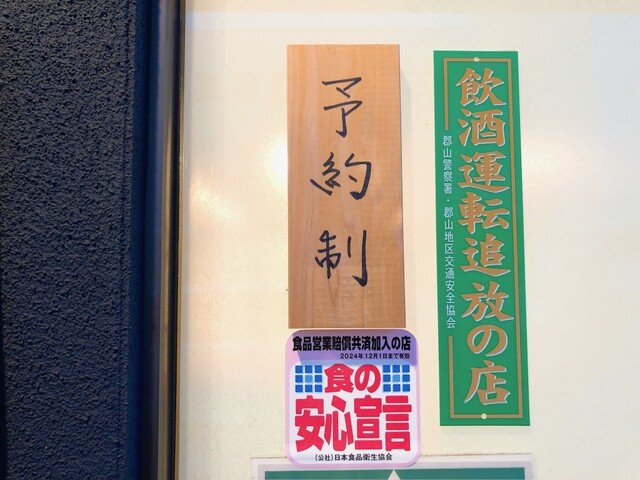 予約制
飲酒運転追放の店
郡山警察署・郡山地区交通安全協会
食品営業賠償共済加入の店
2024年12月1日まで有効
食の
安心宣言
(公社)日本食品衛生協会